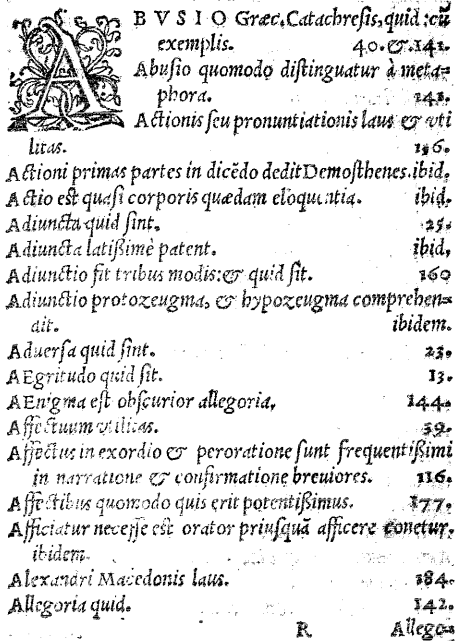 ABVSIO Græc. Catachresis, quid: cũ
exemplis. 40. & .141.
Abusio quomodo distinguatur à meta-
phora. 141.
Actionis seu pronuntiationis laus & vti
litas. 136.
Actioni primas partes in dicẽdo dedit Demosthenes. ibid.
Actio est quasi corporis quædam eloquentia. ibid.
Adiuncta quid sint. 25.
Adiuncta latißimè patent. ibid.
Adiunctio fit tribus modis: & quid sit. 160
Adiunctio protozeugma, & hypozeugma comprehen-
dit. ibidem.
Aduersa quid sint. 23.
AEgritudo quid sit. 13.
AEnigma est obscurior allegoria, 144.
Affectuum vtilitas. 39.
Affectus in exordio & peroratione sunt frequentißimi
in narratione & confirmatione breuiores. 116.
Affectibus quomodo quis erit potentißimus. 177.
Afficiatur necesse est orator priusquã afficere conetur.
ibidem.
Alexandri Macedonis laus. 184.
Allegoria quid. 142.
R Allego-